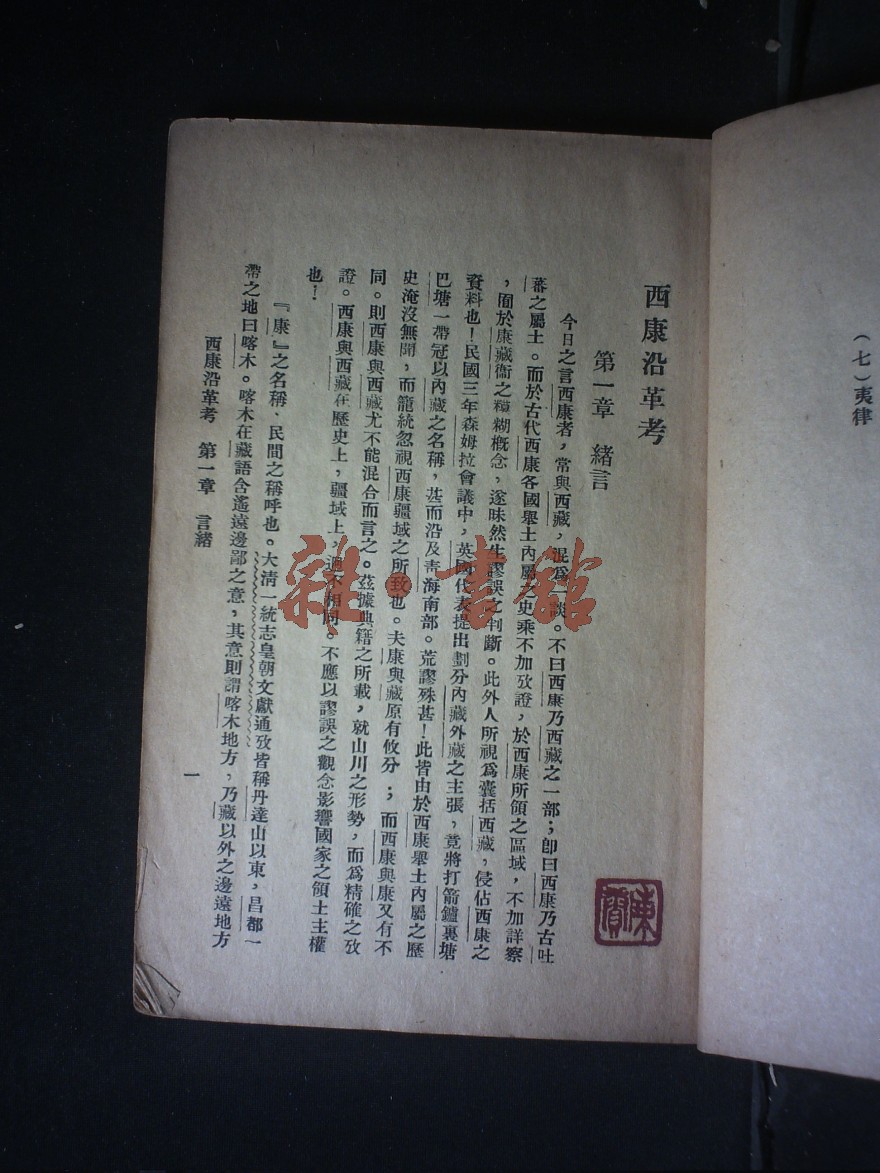 （七）夷律
西康沿革考
第一章 緒言
今日之言西康者，常與西藏，混爲一談。不曰西康乃西藏之一部；卽曰西康乃古吐
蕃之屬土。而於古代西康各國舉土內屬之史乘不加攷證，於西康所領之區域，不加詳察
，囿於康藏衞之糢糊概念，遂昧然生謬誤之判斷。此外人所視爲囊括西藏，侵佔西康之
資料也！民國三年森姆拉會議中，英國代表提出劃分內藏外藏之主張，竟將打箭鑪裏塘
巴塘一帶冠以內藏之名稱，甚而沿及靑海南部。荒謬殊甚！此皆由於西康舉土內屬之歷
史淹沒無聞，而籠統忽視西康疆域之所致也。夫康與藏原有攸分；而西康與康又有不
同。則西康與西藏尤不能混合而言之。茲據典籍之所載，就山川之形勢，而爲精確之攷
證。西康與西藏在歷史上，疆域上，迥不相同。不應以謬誤之觀念影響國家之領土主權
也！
『康』之名稱、民間之稱呼也。大清一統志皇朝文獻通攷皆稱丹達山以東，昌都一
帶之地曰喀木。喀木在藏語含遙遠邊鄙之意，其意則謂喀木地方，乃藏以外之邊遠地方
西康沿革考 第一章 言緒
一
雜·書館